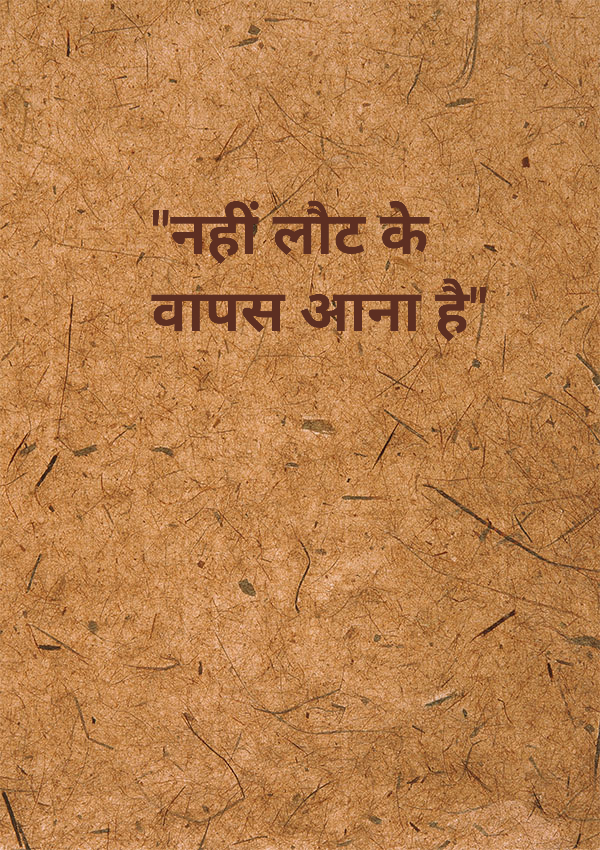 "नहीं लौट के
वापस आना है"